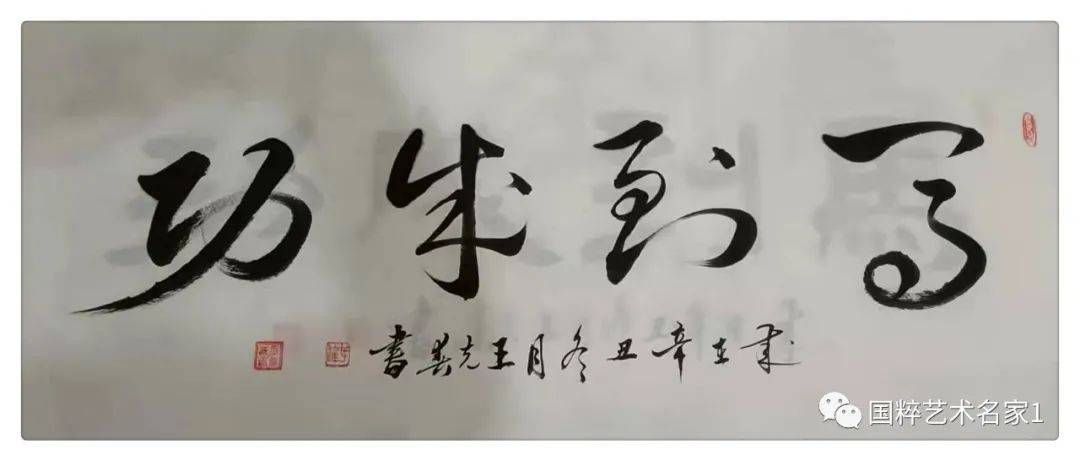 马到成功
歲在辛丑冬月王克書
国粹艺术名家1